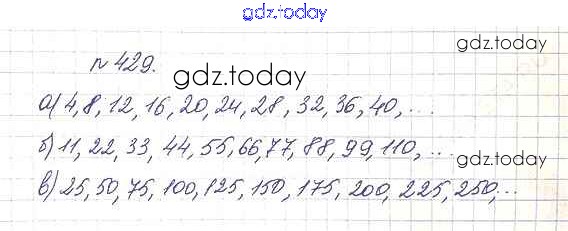 gdz.today
gdz.today
№ 429.
gdz.today
а) 4, 8, 12, 16, 20, 24, 28, 32, 36, 40, ...
б) 11, 22, 33, 44, 55, 66, 77, 88, 99, 110, ...
gdz.today
в) 25, 50, 75, 100, 125, 150, 175, 200, 225, 250, ...